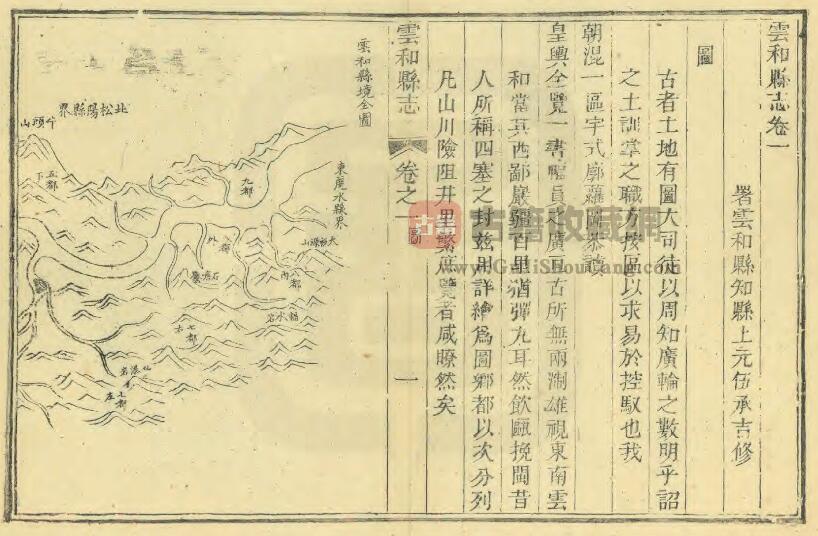 雲和縣志卷一
署雲和縣知縣上元伍承吉修
圖
古者土地有圖大司徒以周知廣輪之數明乎詔
之土訓掌之職方按區以求易於控馭也我
朝混一區宇式廓蘿圖恭讀
皇輿全覽一書幅員之廣亘古所無兩浙雄視東南雲
和當其西鄙巖疆百里猶彈丸耳然飲甌挽閩昔
人所稱四塞之封茲用詳繪爲圖鄉都以次分列
凡山川險阻井里繁庶覽者咸瞭然矣
雲和縣志
卷之一
圖
一
雲和縣境全圖
東麗水縣界
北松陽縣界
九都
五都
下
外
都
內
八都
石塘
七都
七都
庄
古籍
古籍收藏網
www.GuJiShouCang.com